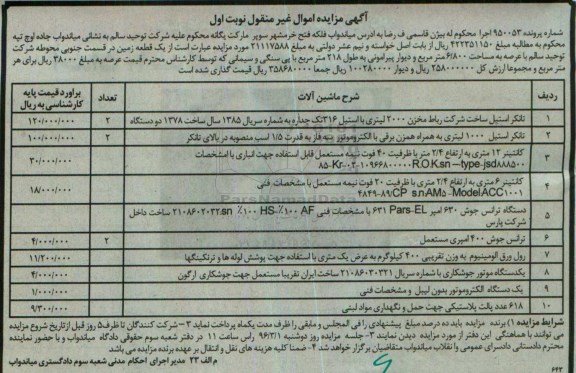 آگهی مزایده اموال غیر منقول نوبت اول
شماره پرونده ۹۵۰۰۵۳ اجرا محکوم له بیژن قاسمی ف رضا به آدرس میاندواب فلکه فتح خرمشهر سوپر مارکت یگانه محکوم علیه شرکت توحید سالم به نشانی میاندواب جاده اوچ تپه
محکوم به مطالبه مبلغ ۴۲۲۳۵۱۱۵۰ ریال از بابت اصل خواسته و نیم عشر دولتی به مبلغ ۲۱۱۱۷۵۸۸ مورد مزایده عبارت است از یک قطعه زمین در قسمت جنوبی محوطه شرکت
توحید سالم با عرصه به مساحت ۶۸۰۰ متر مربع و دیوار پیرامونی به طول ۲۱۸ متر مربع با پی سنگی و سیمانی که توسط کارشناس محترم قیمت عرصه به مبلغ ۳۸۰۰۰ ریال برای هر
متر مربع و مجموعا ارزش کل ۲۵۸۰۰۰۰۰۰ ریال و دیوار ۱۰۰۲۸۰۰۰۰ ریال جمعا ۳۵۸۶۸۰۰۰۰ ریال قیمت گذاری شده است
ردیف شرح ماشین آلات تعداد براورد قیمت پایه کارشناسی به ریال
۱ تانکر استیل ساخت شرکت رباط مخزن ۲۰۰۰ لیتری با استیل ۳۱۶ تک جداره به شماره سریال ۱۳۸۵ سال ساخت ۱۳۷۸ دو دستگاه ۲ ۱۲۰/۰۰۰/۰۰۰
۲ تانکر استیل ۱۰۰۰ لیتری به همراه همزن برقی با الکتروموتور سه فاز به قدرت ۱/۵ اسب منصوبه در بالای تانکر ۲ ۱۰۰/۰۰۰/۰۰۰
۳ کانتینر ۱۲ متری به ارتفاع ۲/۴ متر با ظرفیت ۴۰ فوت نیمه مستعمل قابل استفاده جهت انباری با مشخصات ۳۰/۰۰۰/۰۰۰
۴ کانتینر ۶ متری به ارتفاع ۲/۴ متری با ظرفیت ۲۰ فوت نیمه مستعمل با مشخصات فنی ۱۸/۰۰۰/۰۰۰
Model ACC1001
۵ دستگاه ترانس جوش ۶۳۰ امپر Pars-EL ۶۳۱ با مشخصات فنی AF ۱۰۰٪ HS ۱۰۰٪ sn ۲۱۰۸۶۰۲۰۳۲ ساخت داخل
شرکت پارس
۶ ترانس جوش ۴۰۰ امپری مستعمل ۲ ۴/۰۰۰/۰۰۰
۷ رول ورق آلومینیوم به وزن تقریبی ۴۰۰ کیلوگرم به عرض یک متری با استفاده جهت پوشش لوله ها و ترنکینگها ۱۱/۲۰۰/۰۰۰
۸ یکدستگاه موتور جوشکاری با شماره سریال ۲۱۰۸۶۰۲۰۳۲۱ ساخت ایران تقریبا مستعمل جهت جوشکاری ارگون ۴/۰۰۰/۰۰۰
۹ یک دستگاه الکتروموتور بدون لیبل و مشخصات فنی ۱/۰۰۰/۰۰۰
۱۰ ۶۱۸ عدد پالت پلاستیکی جهت حمل و نگهداری مواد لبنی ۹/۳۰۰/۰۰۰
شرایط مزایده ۱) برنده مزایده باید ده درصد مبلغ پیشنهادی را فی المجلس و مابقی را ظرف مدت یکماه پرداخت نماید ۲- شرکت کنندگان تا ظرف ۵ روز قبل از تاریخ شروع مزایده
می توانند با هماهنگی این دفتر از مورد مزایده دیدن نمایند ۳- جلسه مزایده روز دوشنبه ۹۶/۳/۱ راس ساعت ۱۱ در دفتر شعبه سوم حقوقی دادگاه میاندواب و با حضور نماینده
محترم دادستانی دادسرای عمومی و انقلاب میاندواب متقاضیان برگزار خواهد شد ۴- ضمنا کلیه هزینه های نقل و انتقال بر عهده برنده مزایده می باشد
م الف ۲۳ مدیر اجرای احکام مدنی شعبه سوم دادگستری میاندواب
۶۴۳